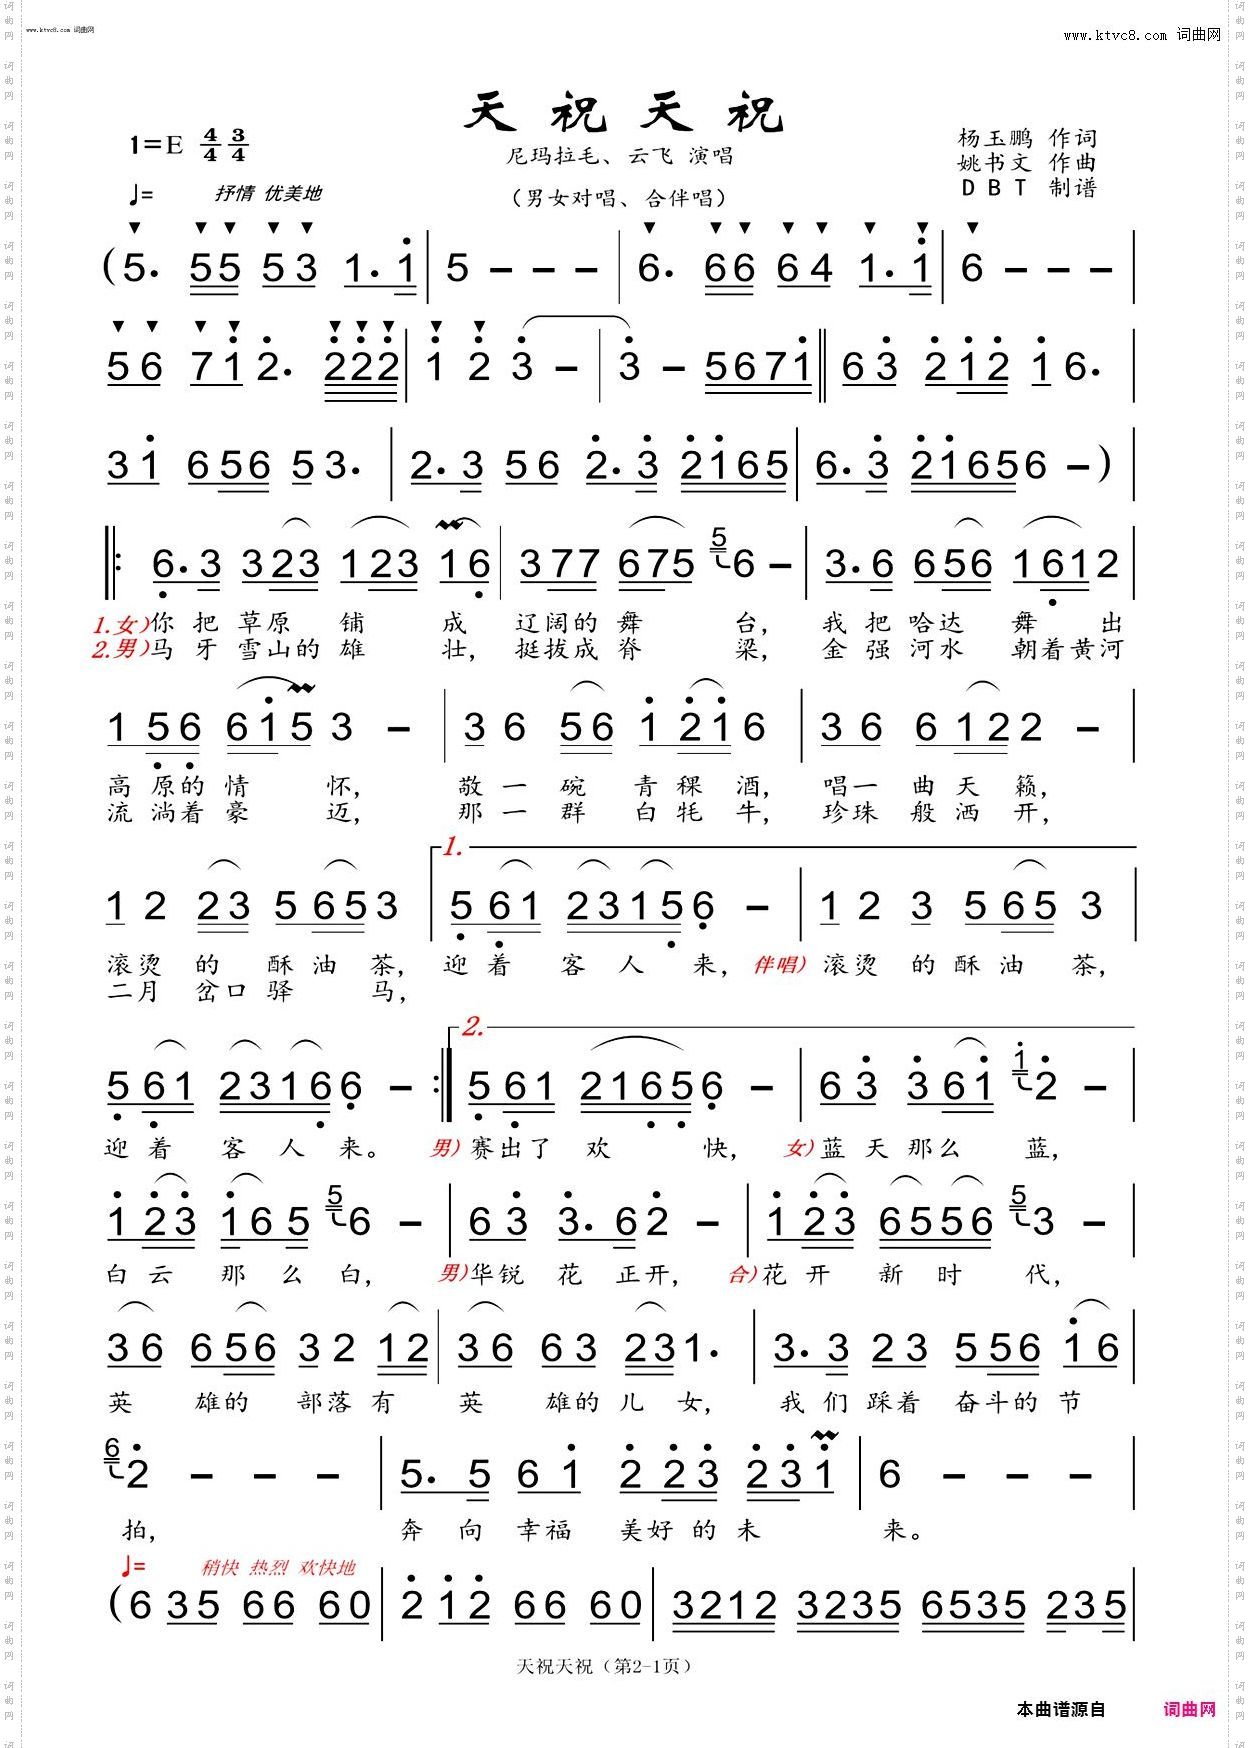 www.ktvc8.com 词曲网
www.ktvc8.com 词曲网
天祝天祝
1=E 4/4 3/4
尼玛拉毛、云飞 演唱
(男女对唱、合伴唱)
杨玉鹏 作词
姚书文 作曲
DBT 制谱
♩= 抒情 优美地
(5. 55 53 1.1 | 5 - - - | 6. 66 64 1.1 | 6 - - - |
56 71 2. 222 | 1 2 3 - | 3 - 5671 || 63 212 1 6. |
31 656 5 3. | 2.3 56 2.3 2165 | 6.3 21656 - ) |
||: 6.3 323 123 16 | 377 675 5 6 - | 3.6 656 161 2 |
1.女)你把草原铺成 辽阔的舞台, 我把哈达舞出
2.男)马牙雪山的雄壮, 挺拔成脊梁, 金强河水 朝着黄河
1 56 615 3 - | 3 6 56 1 21 6 | 36 6 12 2 - |
高原的情怀, 敬一碗青稞酒, 唱一曲天籁,
流淌着豪迈, 那一群白牦牛, 珍珠般洒开,
1.
1 2 23 5 65 3 | 5 61 2315 6 - | 1 2 3 5 65 3
滚烫的酥油茶, 迎着客人来, 伴唱)滚烫的酥油茶,
二月岔口驿马,
2.
5 61 2316 6 - :|| 5 61 2165 6 - | 63 3 61 1 2 - |
迎着客人来。 男)赛出了欢快, 女)蓝天那么蓝,
1 23 1 6 5 5 6 - | 63 3.6 2 - | 1 23 6556 5 3 - |
白云那么白, 男)华锐花正开, 合)花开新时代,
36 656 3 2 12 | 36 63 23 1. | 3.3 23 556 16 |
英雄的部落有 英雄的儿女, 我们踩着奋斗的节
6 2 - - - | 5. 5 61 2 23 23 1 | 6 - - - |
拍, 奔向幸福美好的未来。
♩= 稍快 热烈 欢快地
(6 35 66 60 | 2 12 66 60 | 3212 3235 6535 235 |
天祝天祝(第2-1页)
本曲谱源自 词曲网